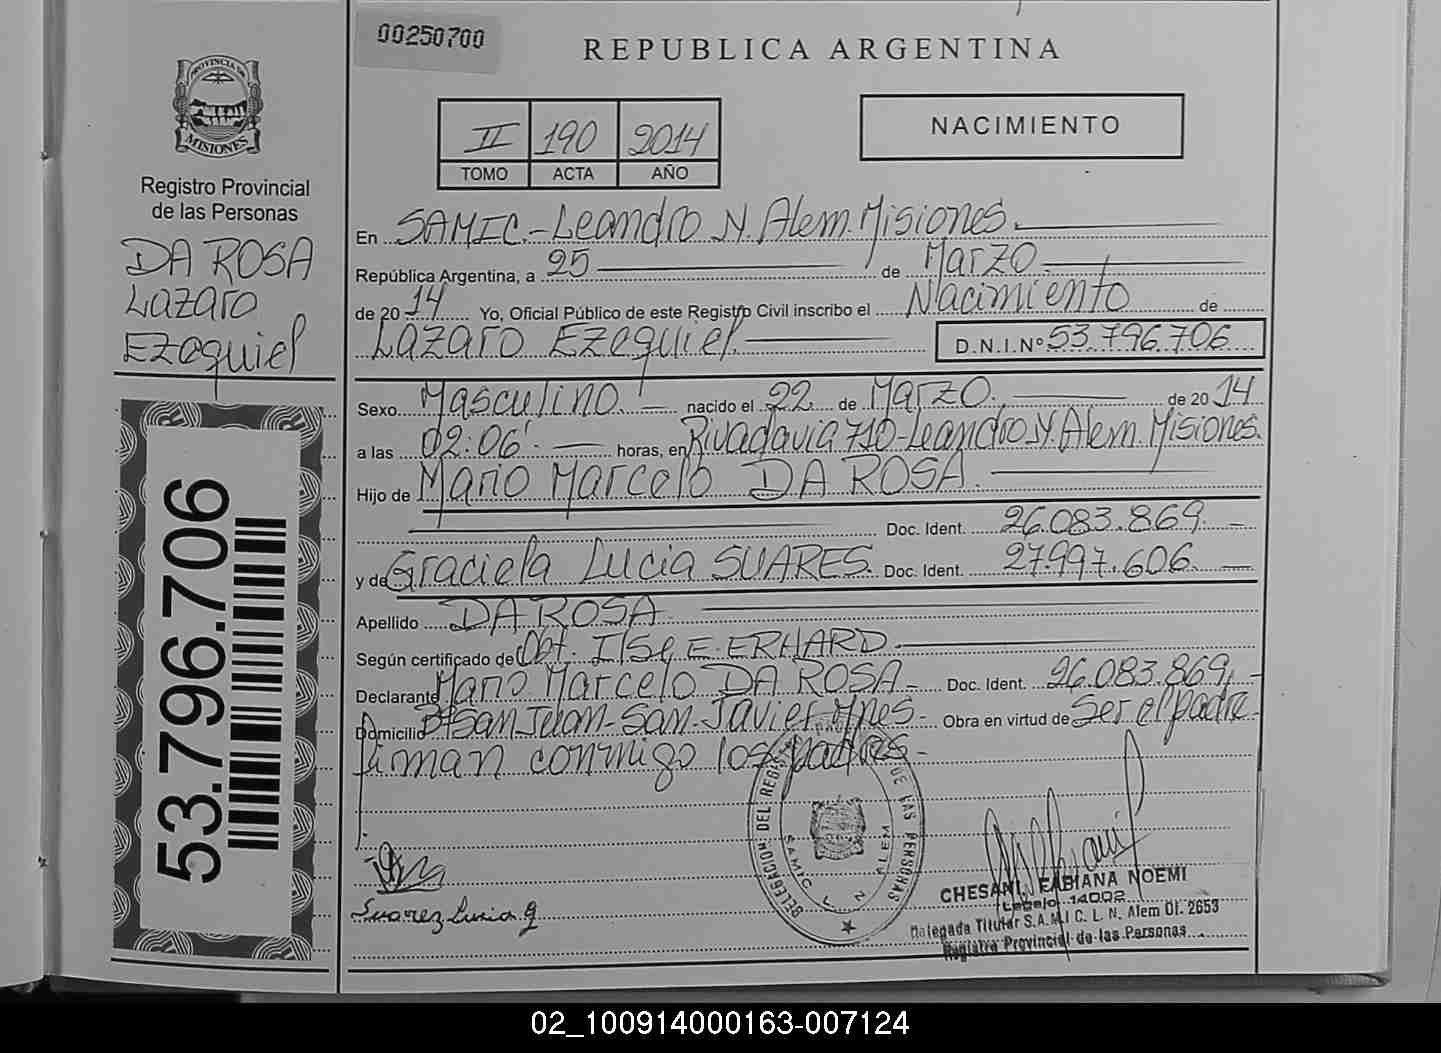 00250700
REPUBLICA ARGENTINA
PROVINCIA DE
MISIONES
Registro Provincial
de las Personas
DA ROSA
Lazaro
Ezequiel
53.796.706
II 190 2014
TOMO ACTA AÑO
NACIMIENTO
En SAMIC.-Leandro N. Alem. Misiones.
República Argentina, a 25 de Marzo
de 2014 Yo, Oficial Público de este Registro Civil inscribo el Nacimiento de
Lazaro Ezequiel. D.N.I.Nº 53.796.706
Sexo Masculino. nacido el 22 de Marzo. de 2014
a las 02:06' horas, en Rivadavia 710-Leandro N. Alem. Misiones.
Hijo de Mario Marcelo DA ROSA.
Doc. Ident. 26.083.869.
y de Graciela Lucia SUARES. Doc. Ident. 27.997.606.
Apellido DA ROSA
Según certificado de Obt. Ilse E. ERHARD.
Declarante Mario Marcelo DA ROSA- Doc. Ident. 26.083.869,
Domicilio Bº San Juan-San Javier Mnes- Obra en virtud de Ser el padre
firman conmigo los padres-
DELEGACION DEL REGIS DE LAS PERSONAS
SAMIC L N ALEM
Suarez Lucia g
CHESANI, FABIANA NOEMI
Legajo 14002
Delegada Titular S.A.M.I C. L. N. Alem Of. 2653
Registro Provincial de las Personas
02_100914000163-007124